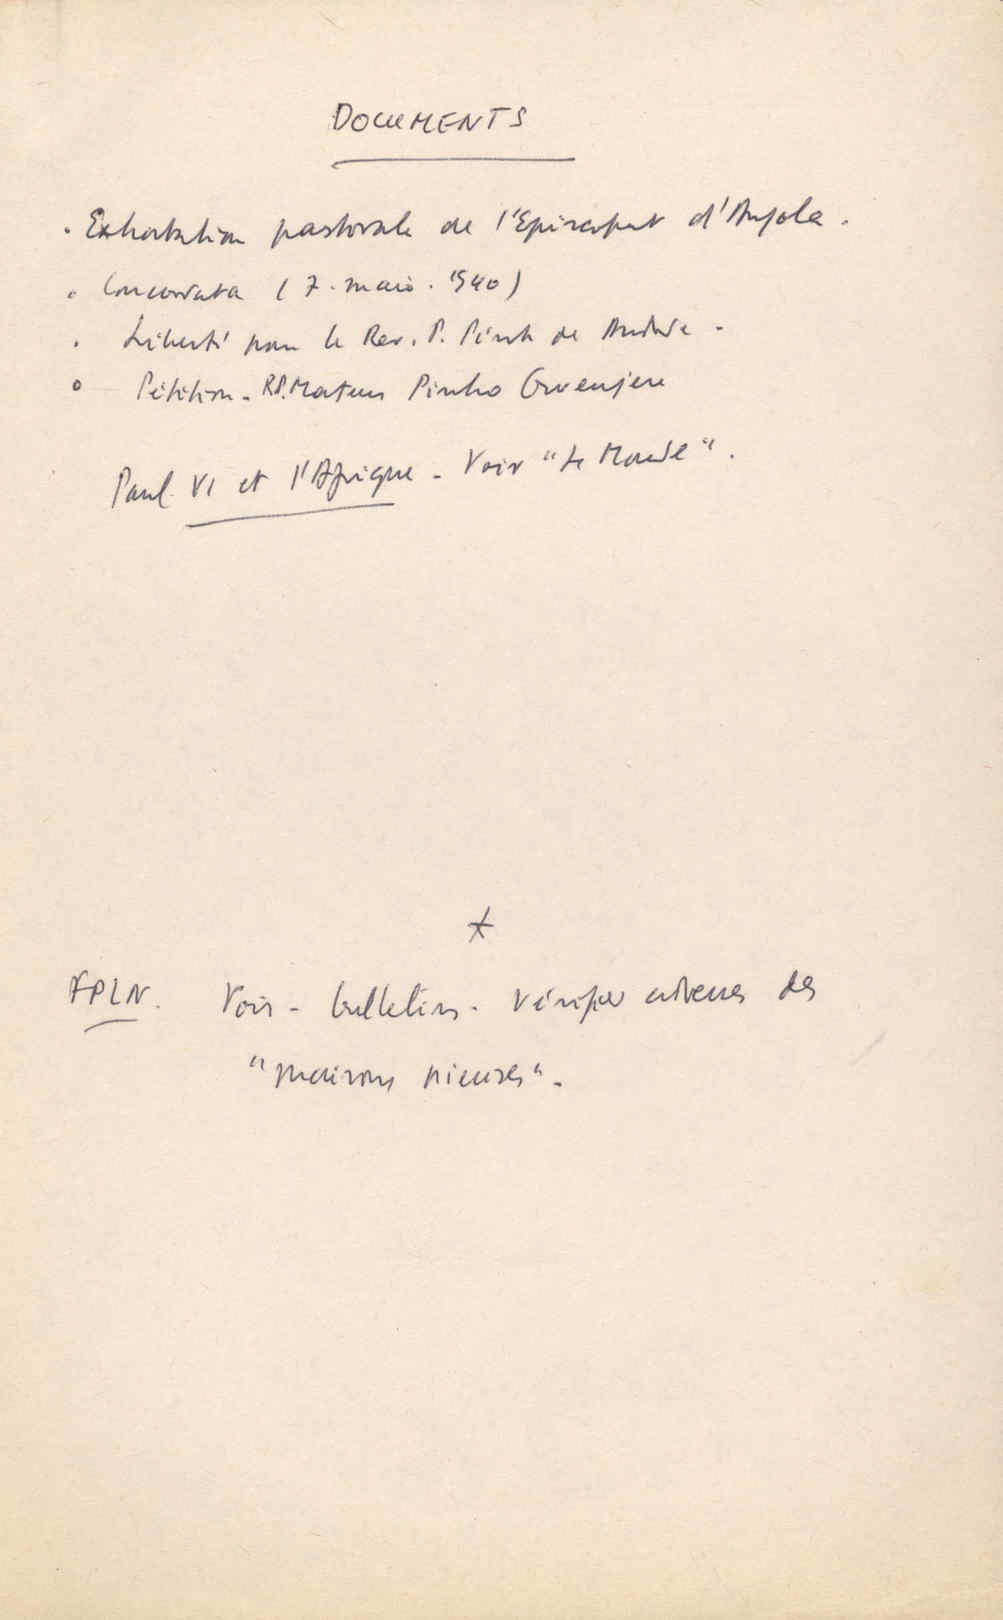 DOCUMENTS
. Exhortation pastorale de l'Episcopat d'Angola.
. Concordata (7. maio. 1940)
. Liberté pour le Rev. P. Pinto de Andrade -
o Pétition - RP. Mateus Pinho Gwenjere
Paul VI et l'Afrique - Voir "Le Monde".
*
FPLN. Voir - bulletins - vérifier adresses des
"maisons pieuses".